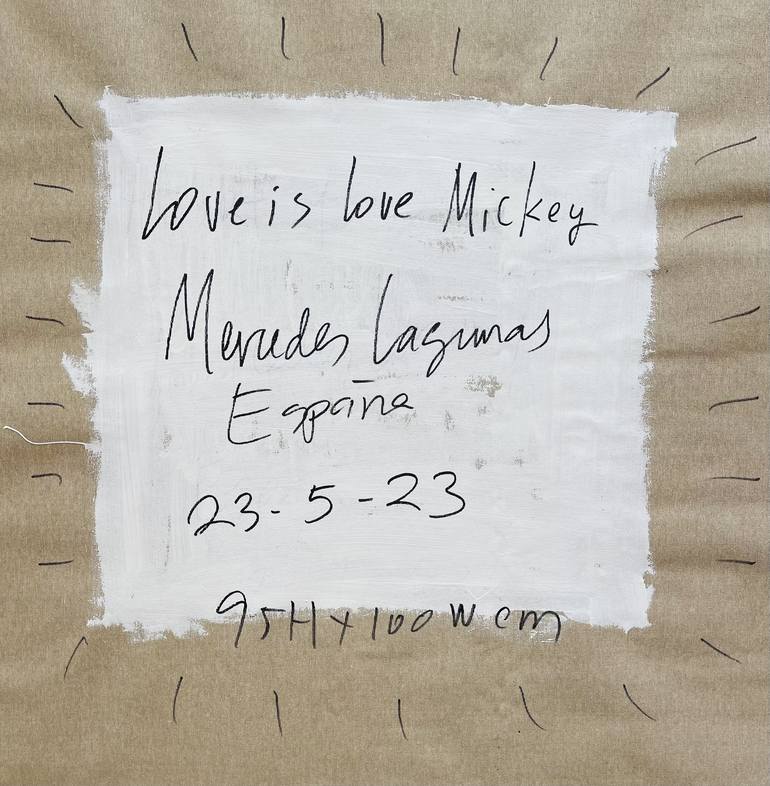 Love is love Mickey
Mercedes Lagunas
España
23-5-23
95H x 100 W cm